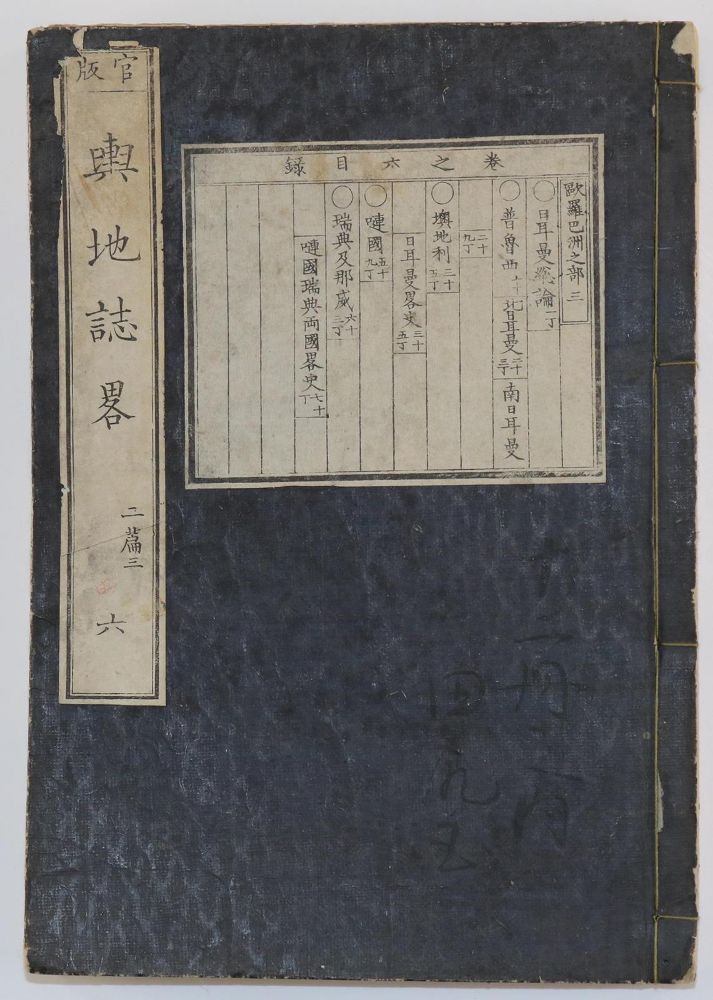 官版
輿地誌畧
二篇三
六
卷之六目録
歐羅巴洲之部 三
〇日耳曼総論 一丁
〇普魯西 北日耳曼 南日耳曼
二十九丁
〇墺地利 三十五丁
日耳曼畧史 三十五丁
〇嗹國 五十九丁
〇瑞典及那威 六十二丁
嗹國瑞典両國畧史 七十丁